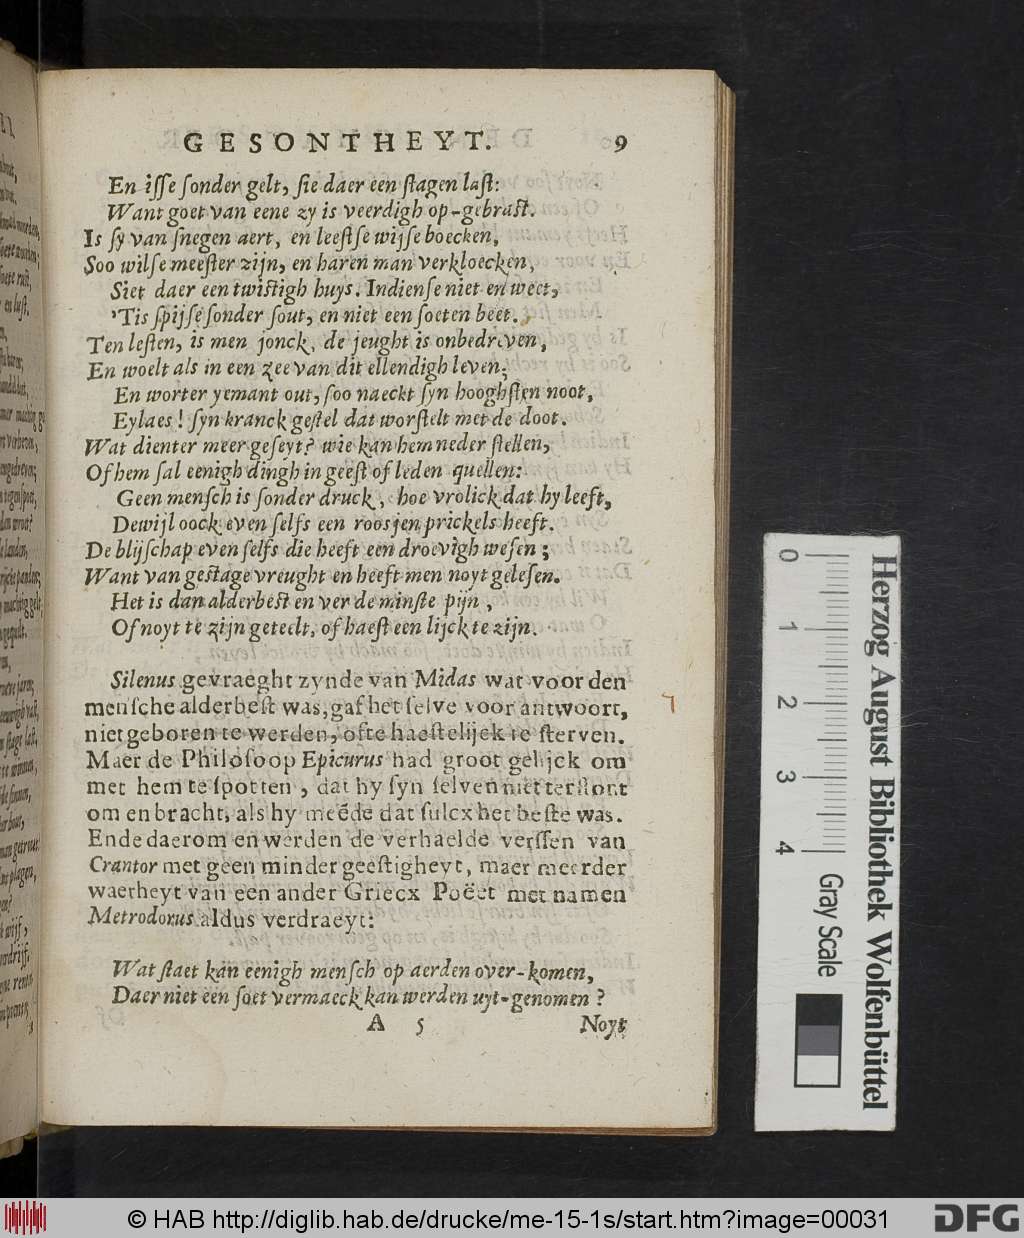 GESONTHEYT. 9
En isse sonder gelt, sie daer een stagen last:
Want goet van eene zy is veerdigh op-gebrast.
Is sy van snegen aert, en leestse wijse boecken,
Soo wilse meester zijn, en haren man verkloecken,
Siet daer een twistigh huys. Indiense niet en weet,
'Tis spijse sonder sout, en niet een soeten beet.
Ten lesten, is men jonck, de jeught is onbedreven,
En woelt als in een zee van dit ellendigh leven;
En worter yemant out, soo naeckt syn hooghsten noot,
Eylaes! syn kranck gestel dat worstelt met de doot.
Wat dienter meer geseyt? wie kan hem neder stellen,
Of hem sal eenigh dingh in geest of leden quellen:
Geen mensch is sonder druck, hoe vrolick dat hy leeft,
Dewijl oock even selfs een roosjen prickels heeft.
De blijschap even selfs die heeft een droevigh wesen;
Want van gestage vreught en heeft men noyt gelesen.
Het is dan alderbest en ver de minste pijn,
Of noyt te zijn geteelt, of haest een lijck te zijn.
Silenus gevraeght zynde van Midas wat voor den
mensche alderbest was, gaf het selve voor antwoort,
niet geboren te werden, ofte haestelijck te sterven.
Maer de Philosoop Epicurus had groot gelijck om
met hem te spotten, dat hy syn selven niet terstont
om en bracht, als hy meede dat sulcx het beste was.
Ende daerom en werden de verhaelde verssen van
Crantor met geen minder geestigheyt, maer meerder
waerheyt van een ander Griecx Poëet met namen
Metrodorus aldus verdraeyt:
Wat staet kan eenigh mensch op aerden over-komen,
Daer niet een soet vermaeck kan werden uyt-genomen?
A 5 Noyt
0 1 2 3 4
Gray Scale
Herzog August Bibliothek Wolfenbüttel
© HAB http://diglib.hab.de/drucke/me-15-1s/start.htm?image=00031
DFG